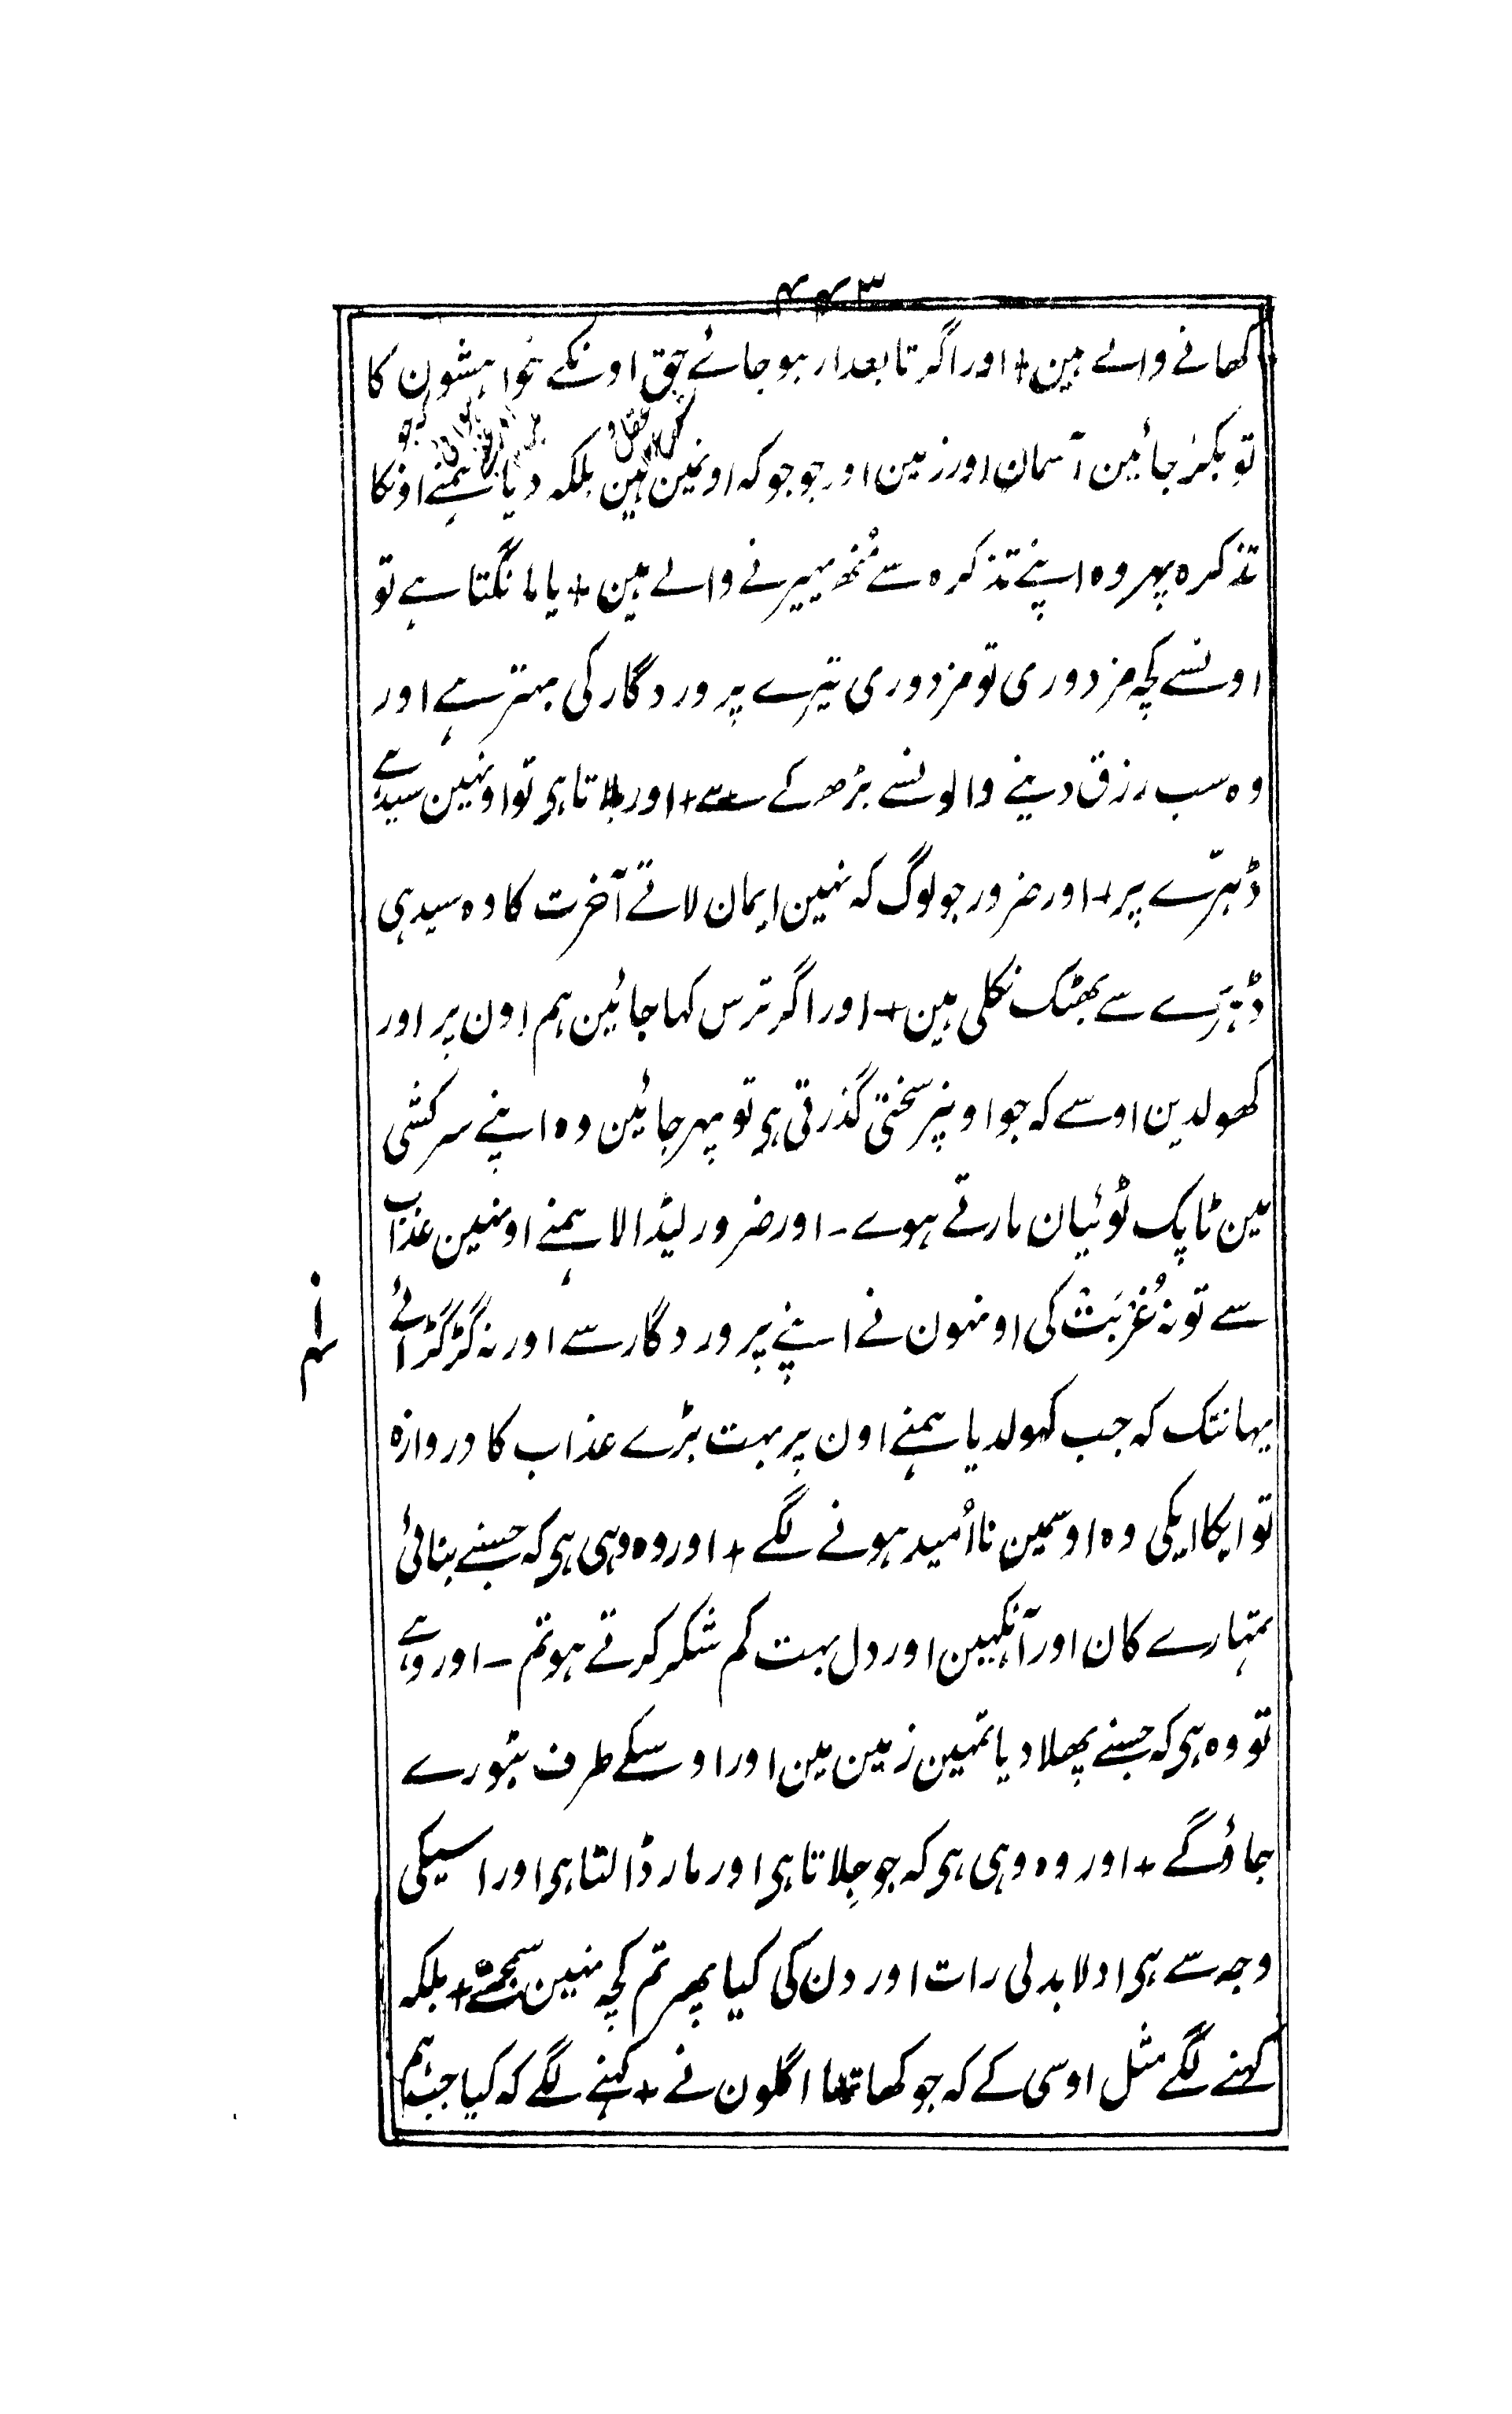 ۴۴۳
کھانے والے ہین + اور اگر تابعدار ہو جائے حق اونکے خواہشون کا
تو بگڑ جائین آسمان اور زمین اور جو جو کہ اونمین ہین بلکہ دیا ہمنے اونکا
تذکرہ پہر وہ اپنے تذکرہ سے مُنھ پہیرنے والے ہین + یا مانگتا ہے تو
اونسے کچہ مزدوری تو مزدوری تیرے پروردگار کی بہتر ہے اور
وہ سب رزق دینے والونسے بڑھ کے ہے + اور بلاتا ہی تو اونہین سیدہے
ڈہرّے پر + اور ضرور جو لوگ کہ نہین ایمان لاتے آخرت کا وہ سیدہی
ڈہرّے سے بھٹک نکلی ہین + اور اگر ترس کہا جائین ہم اون پر اور
کھولدین اوسے کہ جو اونپر سختی گذرتی ہی تو پہر جائین وہ اپنے سرکشی
مین ٹاپک ٹوئیان مارتے ہوے - اور ضرور لیڈالا ہمنے اونہین عذاب
سے تو نہ غُربَت کی اونہون نے اپنے پروردگار سے اور نہ گڑگڑائے
یہانتک کہ جب کہولدیا ہمنے اون پر بہت بڑے عذاب کا دروازہ
تو ایکا ایکی وہ اوسمین نا اُمید ہونے لگے + اور وہ وہی ہی کہ جسنے بنائی
تمہارے کان اور آنکہین اور دل بہت کم شکر کرتے ہو تم - اور وہے
تو وہ ہی کہ جسنے پھلا دیا تمہین زمین مین اور اوسکے طرف بٹورے
جاؤگے + اور وہ وہی ہی کہ جو جِلاتا ہی اور مار ڈالتا ہی اور اسیکی
وجہ سے ہی ادلا بدلی رات اور دن کی کیا پھر تم کچہ نہین سمجھتے + بلکہ
کہنے لگے مثل اوسی کے کہ جو کھا تھا اگلون نے + کہنے لگے کہ کیا جب ہم